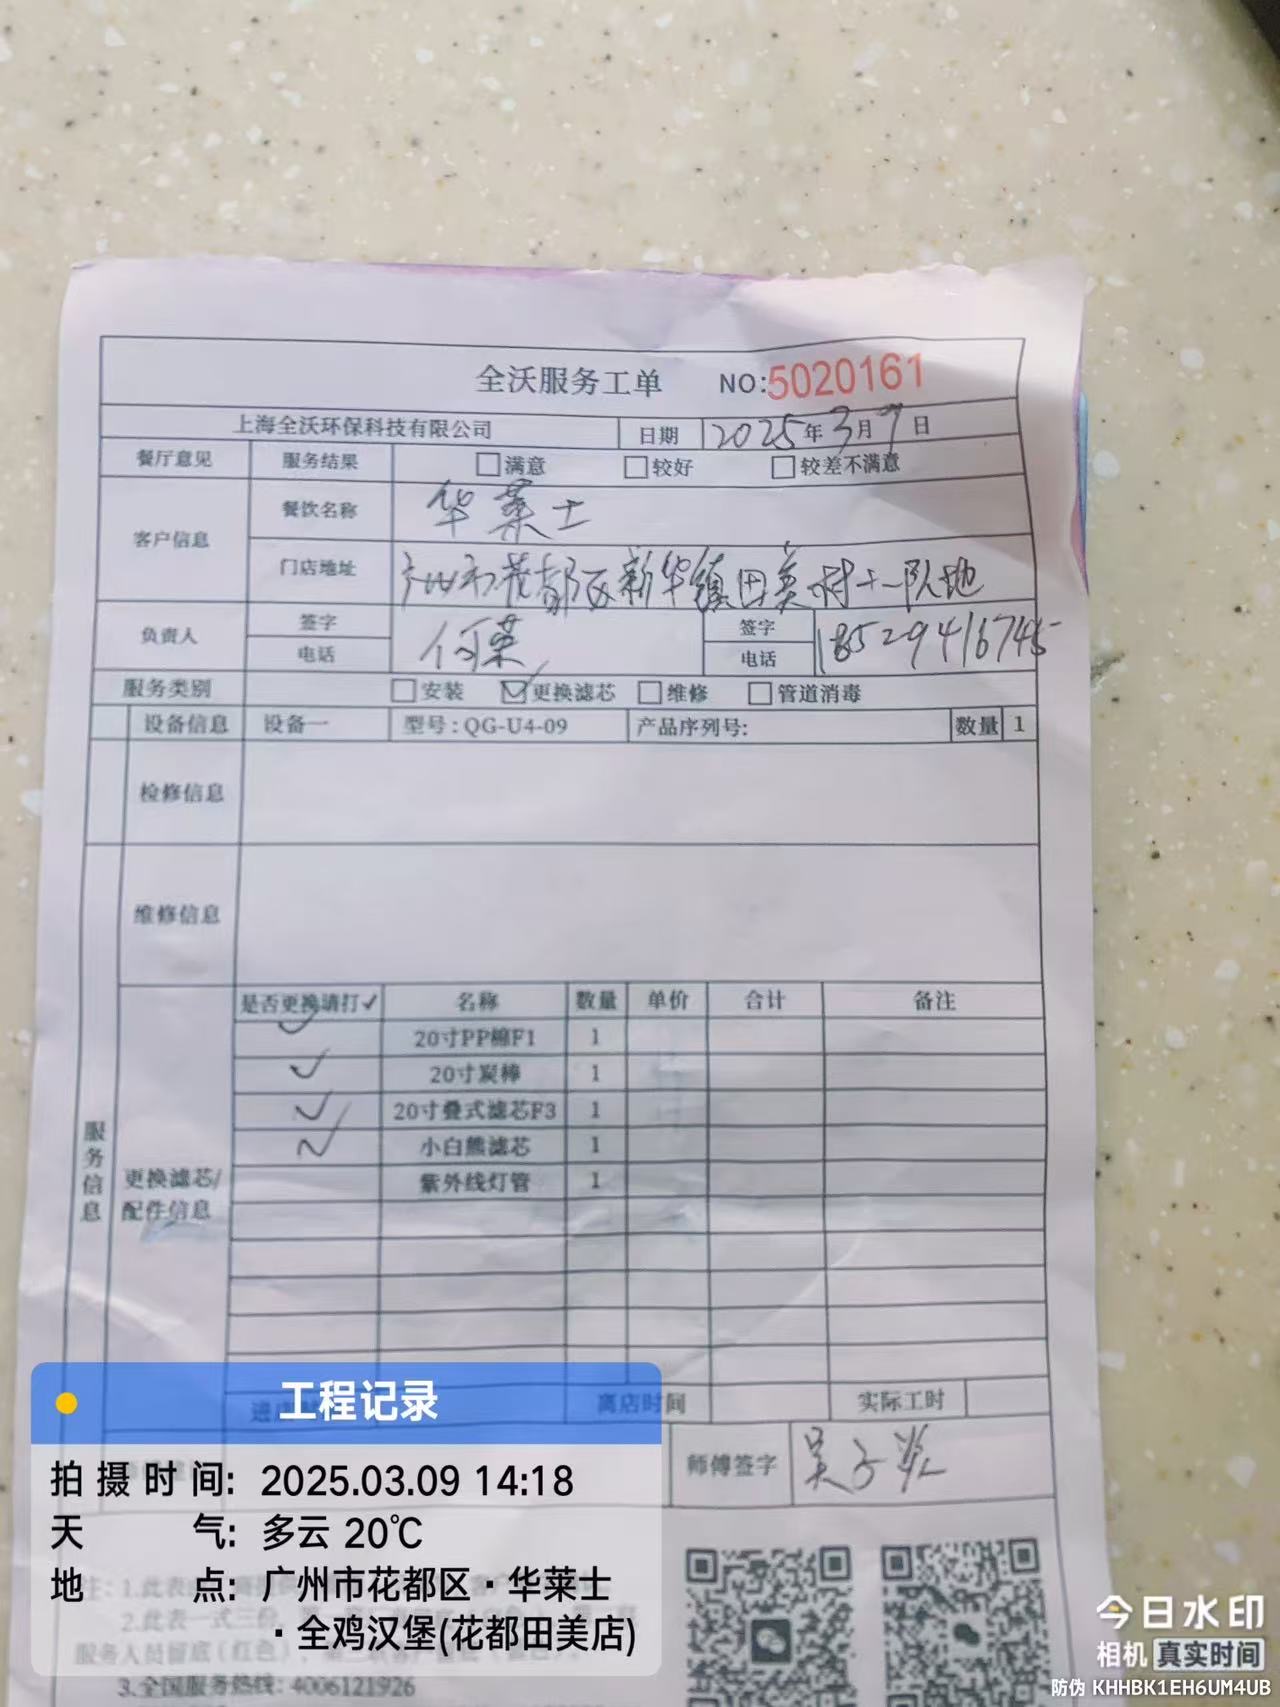 全沃服务工单 NO:5020161
上海全沃环保科技有限公司 日期 2025年3月9日
餐厅意见 服务结果 满意 较好 较差不满意
客户信息 餐饮名称 华莱士
门店地址 广州市花都区新华镇田美村十一队地
负责人 签字 何荣 签字
电话 电话 18529416745
服务类别 安装 更换滤芯 维修 管道消毒
设备信息 设备一 型号:QG-U4-09 产品序列号: 数量 1
检修信息
维修信息
服务信息
更换滤芯/配件信息
是否更换请打✓ 名称 数量 单价 合计 备注
✓ 20寸PP棉F1 1
✓ 20寸炭棒 1
✓ 20寸叠式滤芯F3 1
✓ 小白熊滤芯 1
紫外线灯管 1
离店时间 实际工时
师傅签字 吴子
2.此表一式三份,
服务人员留底(红色)
3.全国服务热线:4006121926
工程记录
拍摄时间: 2025.03.09 14:18
天气: 多云 20℃
地点: 广州市花都区·华莱士
·全鸡汉堡(花都田美店)
今日水印
相机 真实时间
防伪 KHHBK1EH6UM4UB